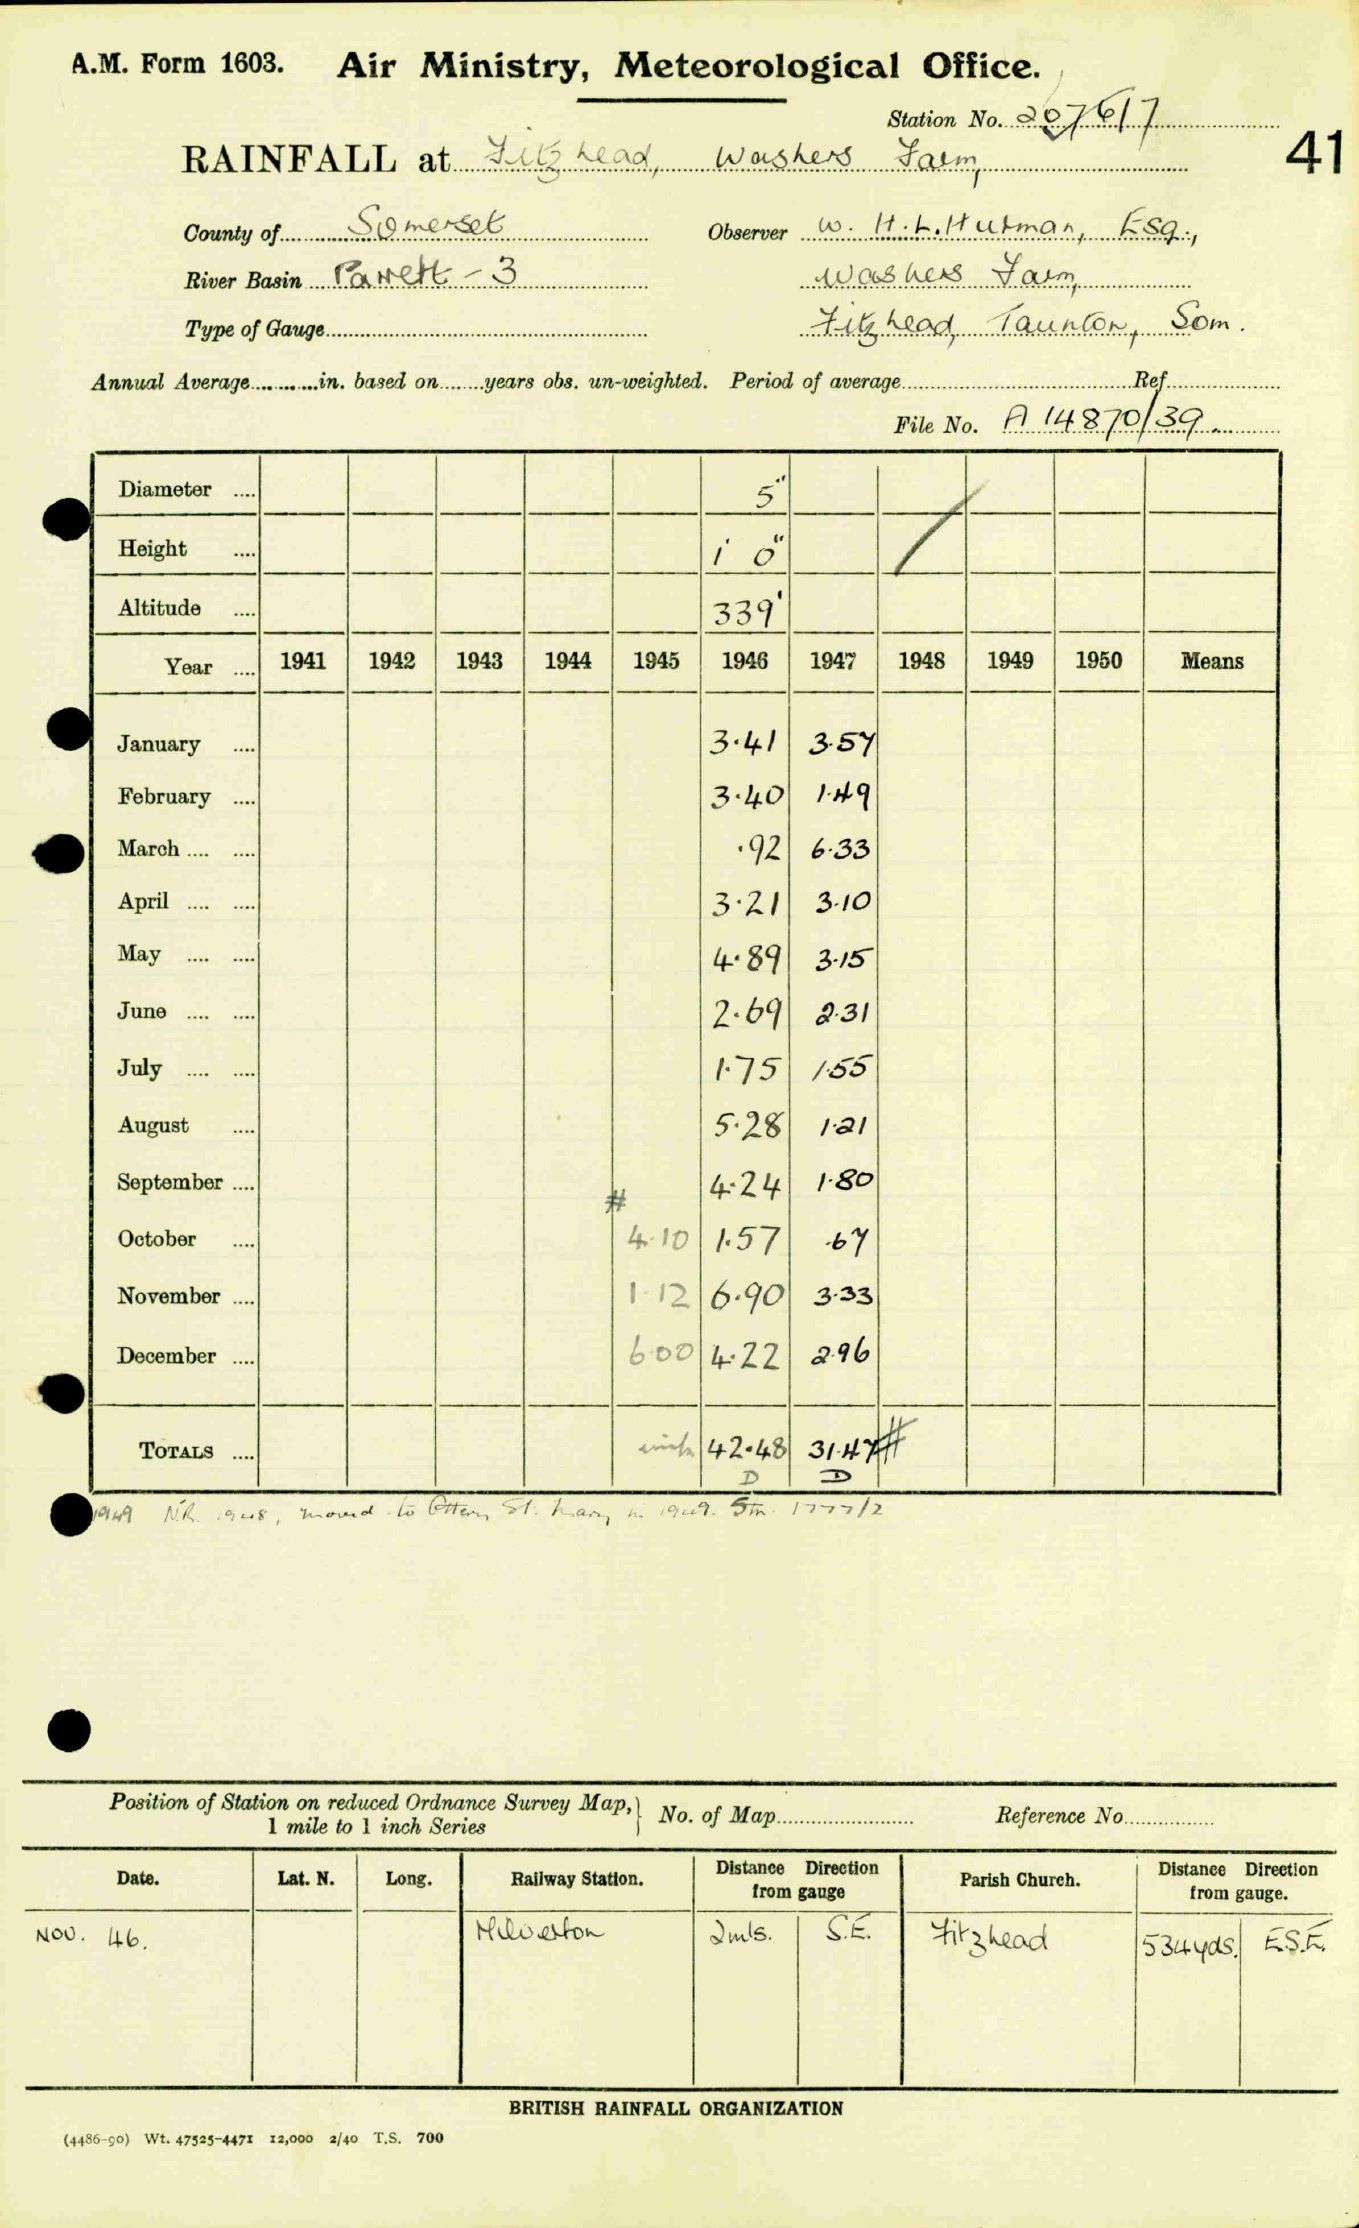 A.M. Form 1603. Air Ministry, Meteorological Office.
Station No. 207617
RAINFALL at Fitzhead, Washers Farm, 41
County of Somerset Observer W. H. L. Hurman, Esq.,
River Basin Parrett - 3 Washers Farm,
Type of Gauge Fitzhead, Taunton, Som.
Annual Average in. based on years obs. un-weighted. Period of average Ref
File No. A 14870/39
Diameter .... 5"
Height .... 1' 0"
Altitude .... 339'
Year .... 1941 1942 1943 1944 1945 1946 1947 1948 1949 1950 Means
January .... 3.41 3.57
February .... 3.40 1.49
March .... .... .92 6.33
April .... .... 3.21 3.10
May .... .... 4.89 3.15
June .... .... 2.69 2.31
July .... .... 1.75 1.55
August .... 5.28 1.21
September .... 4.24 1.80
#
October .... 4.10 1.57 .67
November .... 1.12 6.90 3.33
December .... 6.00 4.22 2.96
TOTALS .... 42.48 31.47 #
D D
1949 N.R. 1948, moved to Ottery St. Mary in 1949. Stn. 1777/2
Position of Station on reduced Ordnance Survey Map, } No. of Map Reference No.
1 mile to 1 inch Series
Date. Lat. N. Long. Railway Station. Distance Direction Parish Church. Distance Direction
from gauge from gauge.
NOV. 46. Milverton 2mls. S.E. Fitzhead 534yds. E.S.E.
BRITISH RAINFALL ORGANIZATION
(4486-90) Wt. 47525-4471 12,000 2/40 T.S. 700